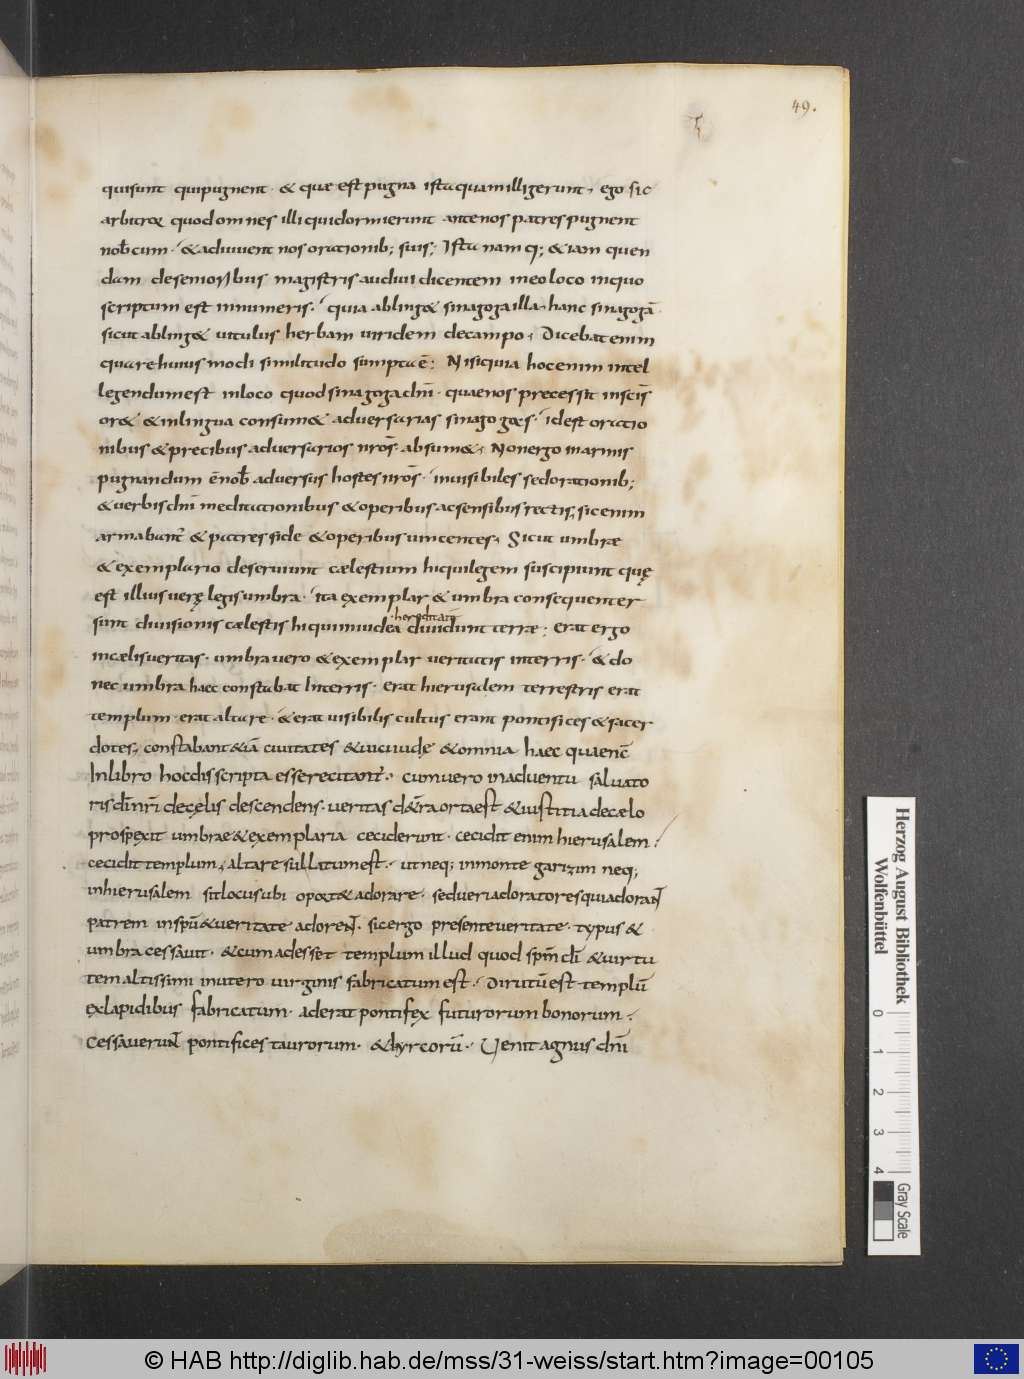 49.
quisunt quipugnent · & quae est pugna ista quam illi gerunt, ego sic
arbitror quod omnes illi qui dormierunt ante nos patres pugnent
nob̄ cum · & adiuvent nos orationib; suis; Ista namq; &iam quen
dam desenioribus magistris audivi dicentem ineoloco inquo
scriptum est innumeris · quia abling& sinagoga illa, hanc sinagogā
sicut abling& vitulus herbam viridem decampo, Dicebat enim
quare huius modi similitudo sumpta ē; Nisi quia hoc enim intel
legendum est inloco quod sinagoga dn̄i · quae nos precessit insc̄is
ore & inlingua consum& adversarias sinagogas · id est oratio
nibus & precibus adversarios nr̄os absum&, Non ergo inarmis
pugnandum ē nob̄ adversus hostes nr̄os · invisibiles sed orationib;
& verbi dn̄i meditationibus & operibus ac sensibus rectis, sic enim
armabant̄ & patres fide & operibus vincentes, Sicut umbrae
& exemplario deserviunt caelestium hi qui legem suscipiunt quę
est illius verę legis umbra · ita exemplar & umbra consequenter
hereditatē
sunt divisionis caelestis hi qui iniudea dividunt terrae; erat ergo
incaelis veritas · umbra vero & exemplar veritatis interris · & do
nec umbra haec constabat Interris · erat hierusalem terrestris erat
templum · erat altare · & erat visibilis cultus erant pontifices & sacer
dotes, constabant &iā civitates & vici iudę & omnia haec quae nc̄
In libro hoc discripta esse recitant̄ · cum vero in adventu salvato
ris dn̄i nr̄i decęlis descendens · veritas d& ̄ra orta est & iustitia decaelo
prospexit umbrae & exemplaria ceciderunt · cecidit enim hierusalem;
cecidit templum, altare sullatum est · ut neq; inmonte garizim neq;
inhierusalem sit locus ubi oport& adorare · sed veri adoratores qui adorant
patrem inspū & veritate adorent · sic ergo presente veritate · typus &
umbra cessavit · & cum adesset templum illud quod spm̄ dī & virtu
tem altissimi inutero virginis fabricatum est · Dirutū est templū
ex lapidibus fabricatum · aderat pontifex futurorum bonorum;
Cessaverunt pontifices taurorum · & hyrcorū · Venit agnus dn̄i
Herzog August Bibliothek
Wolfenbüttel
0 1 2 3 4
Gray Scale
© HAB http://diglib.hab.de/mss/31-weiss/start.htm?image=00105